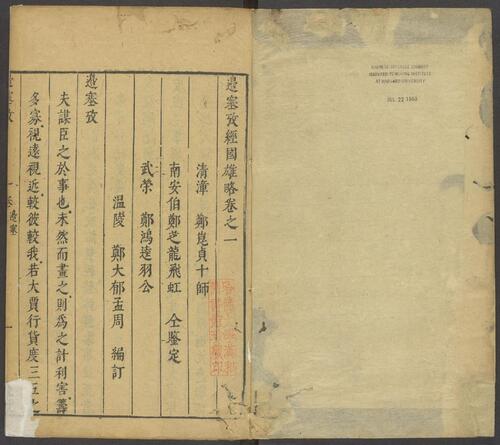 邉塞攷經國雄略卷之一
清漳 鄭崑貞十師
南安伯鄭芝龍飛虹 仝鑒定
武榮 鄭鴻逵羽公
溫陵 鄭大郁孟周 編訂
邉塞攷
夫謀臣之於事也未然而畫之則為之計利害籌
多寡視遠視近較彼較我若大賈行貨度三五之
邉塞攷
一卷邉塞
一
CHINESE-JAPANESE LIBRARY
HARVARD-YENCHING INSTITUTE
AT HARVARD UNIVERSITY
JUL 22 1960